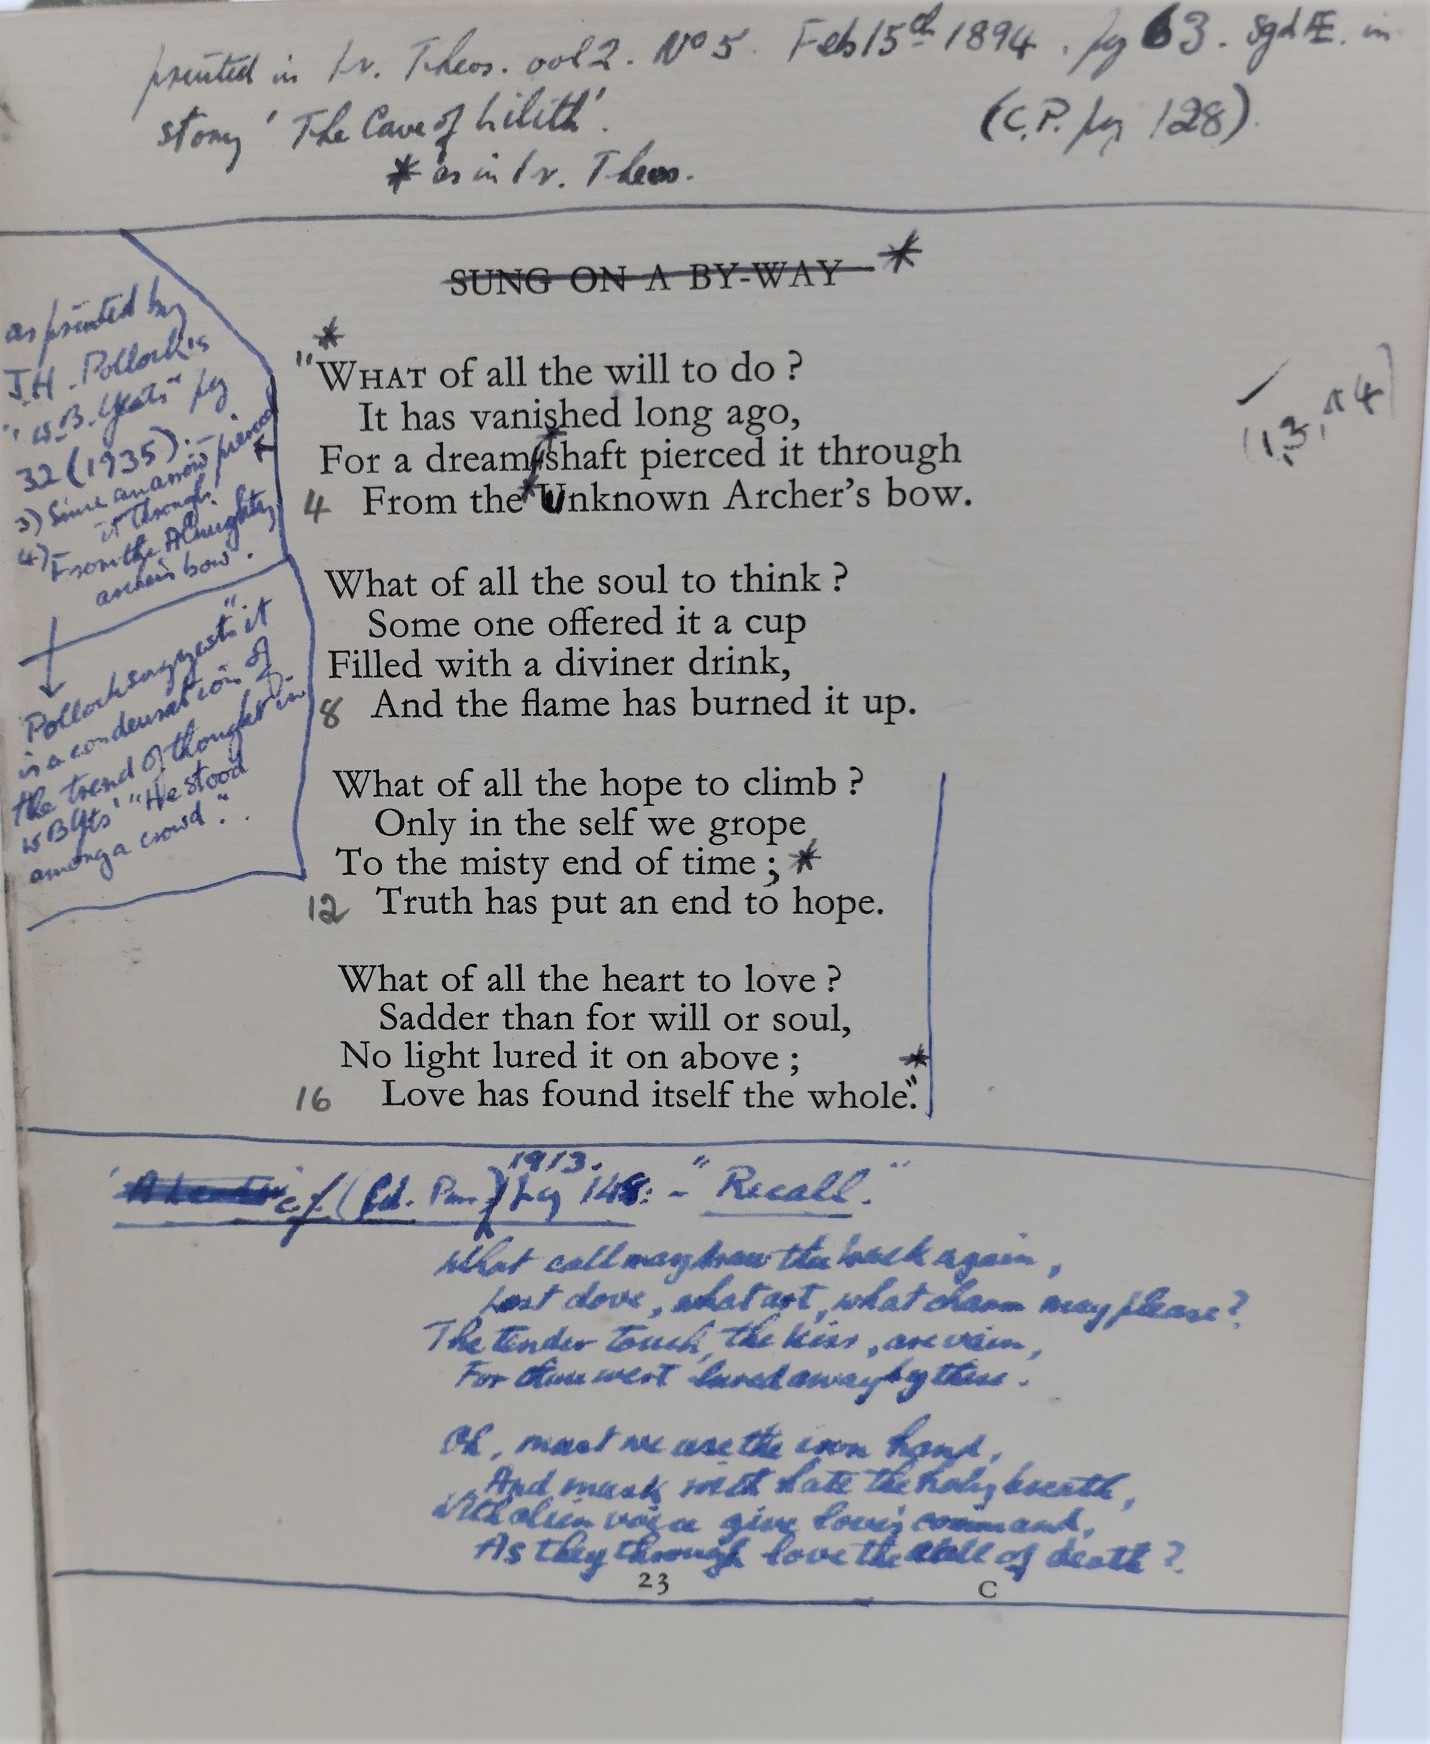 printed in Ir. Theos. vol 2. No 5. Feb 15th 1894. pg 63. sgd Æ. in
story 'The Cave of Lilith'. (C.P. pg 128).
* as in Ir. Theos.
SUNG ON A BY-WAY *
*
"WHAT of all the will to do ?
It has vanished long ago,
For a dream-shaft pierced it through
4 From the Unknown Archer's bow.
What of all the soul to think ?
Some one offered it a cup
Filled with a diviner drink,
8 And the flame has burned it up.
What of all the hope to climb ?
Only in the self we grope
To the misty end of time ; *
12 Truth has put an end to hope.
What of all the heart to love ?
Sadder than for will or soul,
No light lured it on above ; *
16 Love has found itself the whole."
as printed by
J.H. Pollock's
"W.B. Yeats" pg
32 (1935).
3) Since an arrow pierced
it through
4) From the Almighty
archer's bow".
Pollock suggests "it
is a condensation of
the trend of thought" in
WBYts' "He stood
among a crowd".
(13, 14)
cf. (Cd. Pm.) 1913. pg 148: - "Recall."
What call may draw thee back again,
Lost dove, what art, what charm may please?
The tender touch, the kiss, are vain,
For thou wert lured away by these.
Oh, must we use the iron hand,
And mask with hate the holy breath,
With alien voice give love's command,
As they through love the call of death?
23 C